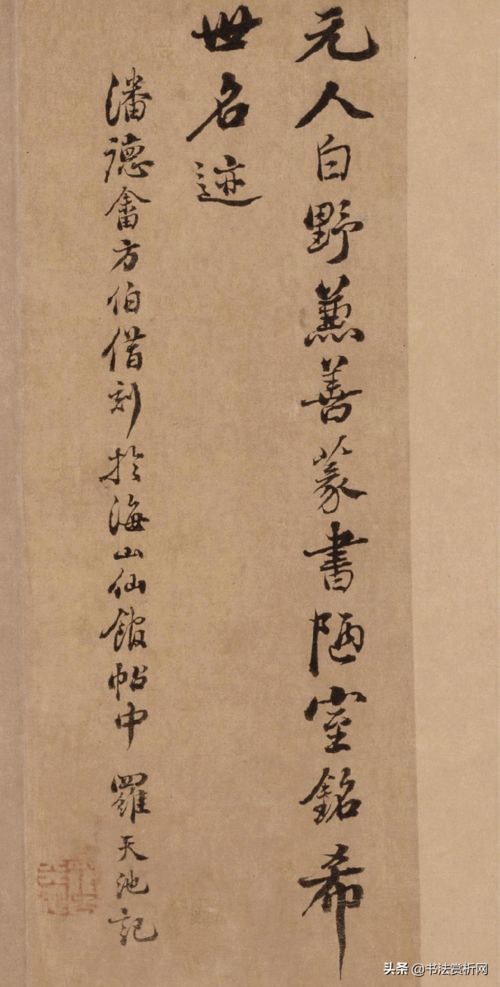 元人白野兼善篆書陋室銘希
世名迹
潘德畬方伯借刻於海山仙館帖中 羅天池記
头条@书法赏析网